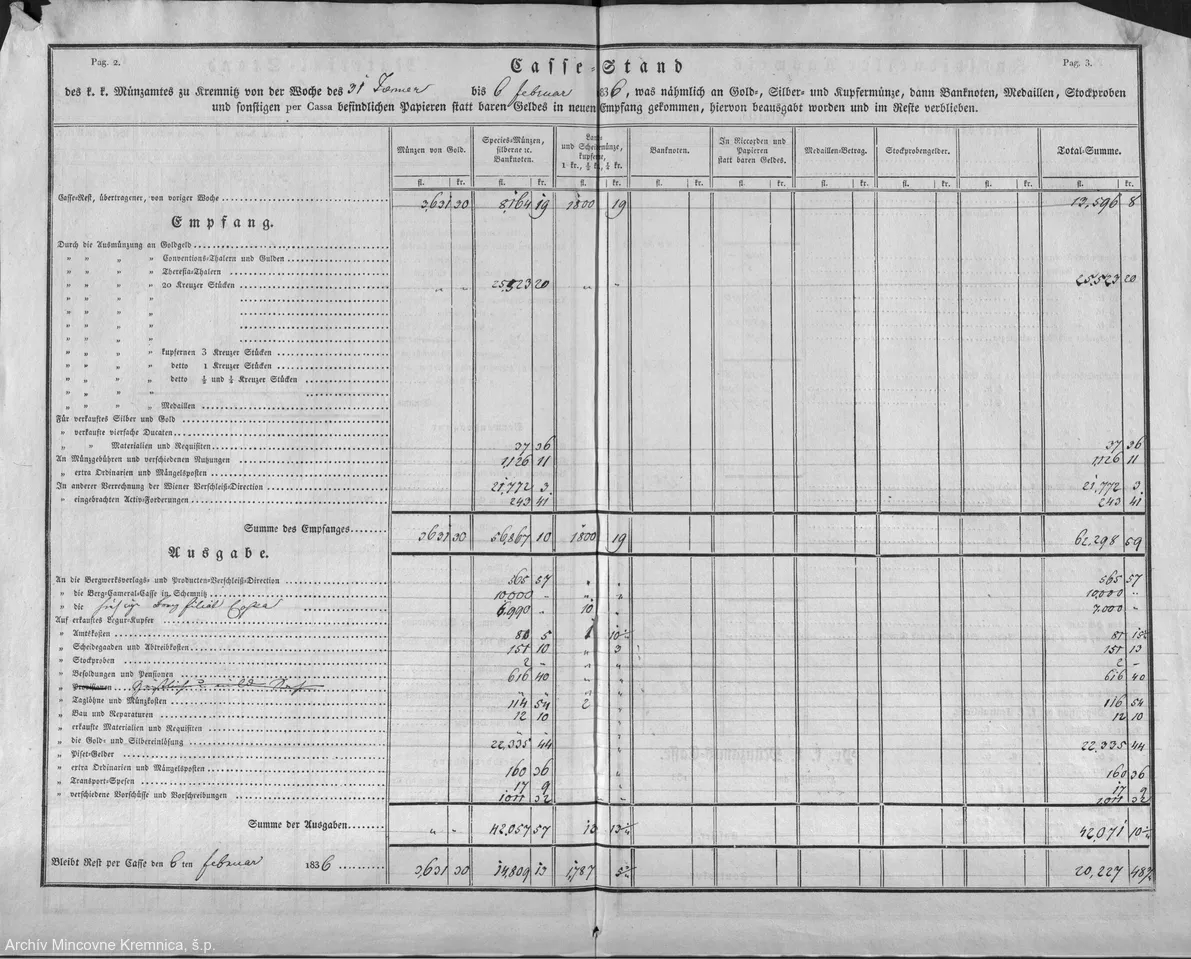 Pag. 2.
Casse-Stand
Pag. 3.
des k. k. Münzamtes zu Kremnitz von der Woche des 31 Jänner bis 6 februar 836, was nähmlich an Gold-, Silber- und Kupfermünze, dann Banknoten, Medaillen, Stockproben
und sonstigen per Cassa befindlichen Papieren statt baren Geldes in neuen Empfang gekommen, hiervon beausgabt worden und im Reste verblieben.
Münzen von Gold. Species-Münzen, silberne ꝛc. Banknoten. und Scheidemünze, kupferne, 1 kr., ½ kr., ¼ kr. Banknoten. In Recorden und Papieren statt baren Geldes. Medaillen-Betrag. Stockprobengelder. Total-Summe.
fl. kr. fl. kr. fl. kr. fl. kr. fl. kr. fl. kr. fl. kr. fl. kr. fl. kr. fl. kr.
Casse-Rest, übertragener, von voriger Woche 3,631 30 8,164 19 1800 19 13,596 8
Empfang.
Durch die Ausmünzung an Goldgeld
" " " " Conventions-Thalern und Gulden
" " " " Theresia-Thalern
" " " " 20 Kreuzer Stücken " " 25,523 20 " " 25,523 20
" " " "
" " " "
" " " "
" " " "
" " " " kupfernen 3 Kreuzer Stücken
" " " " detto 1 Kreuzer Stücken
" " " " detto ½ und ¼ Kreuzer Stücken
" " " "
" " " " Medaillen
Für verkauftes Silber und Gold
" verkaufte vierfache Ducaten
" " Materialien und Requisiten 37 36 37 36
An Münzgebühren und verschiedenen Nutzungen 1,126 11 1,126 11
" extra Ordinarien und Mängelsposten
In anderer Verrechnung der Wiener Verschleiß-Direction 21,772 3 21,772 3
" eingebrachten Activ-Forderungen 243 41 243 41
Summe des Empfanges 3,631 30 56,867 10 1800 19 62,298 59
Ausgabe.
An die Bergwerksverlags- und Producten-Verschleiß-Direction 565 57 " " 565 57
" die Berg-Cameral-Casse in Schemnitz 10,000 " " " 10,000 "
" die 6,990 " 10 " 7,000 "
Auf erkauftes Legur-Kupfer
" Amtskosten 80 5 1 81
" Scheidegaaden und Abtreibkosten 151 10 " 3 151 13
" Stockproben 2 – " " 2 –
" Besoldungen und Pensionen 616 40 " 616 40
" Provisionen
" Taglöhne und Münzkosten 114 54 2 " 116 54
" Bau und Reparaturen 12 10 " 12 10
" erkaufte Materialien und Requisiten
" die Gold- und Silbereinlösung 22,335 44 " 22,335 44
" Piset-Gelder
" extra Ordinarien und Mängelsposten 160 36 " 160 36
" Transport-Spesen 17 9 " 17 9
" verschiedene Vorschüsse und Vorschreibungen 1011 32 " 1011 32
Summe der Ausgaben " " 42,057 57 13 42,071
Bleibt Rest per Casse den 6 ten februar 1836 3,631 30 14,809 13 1,787 20,227
Archív Mincovne Kremnica, š.p.